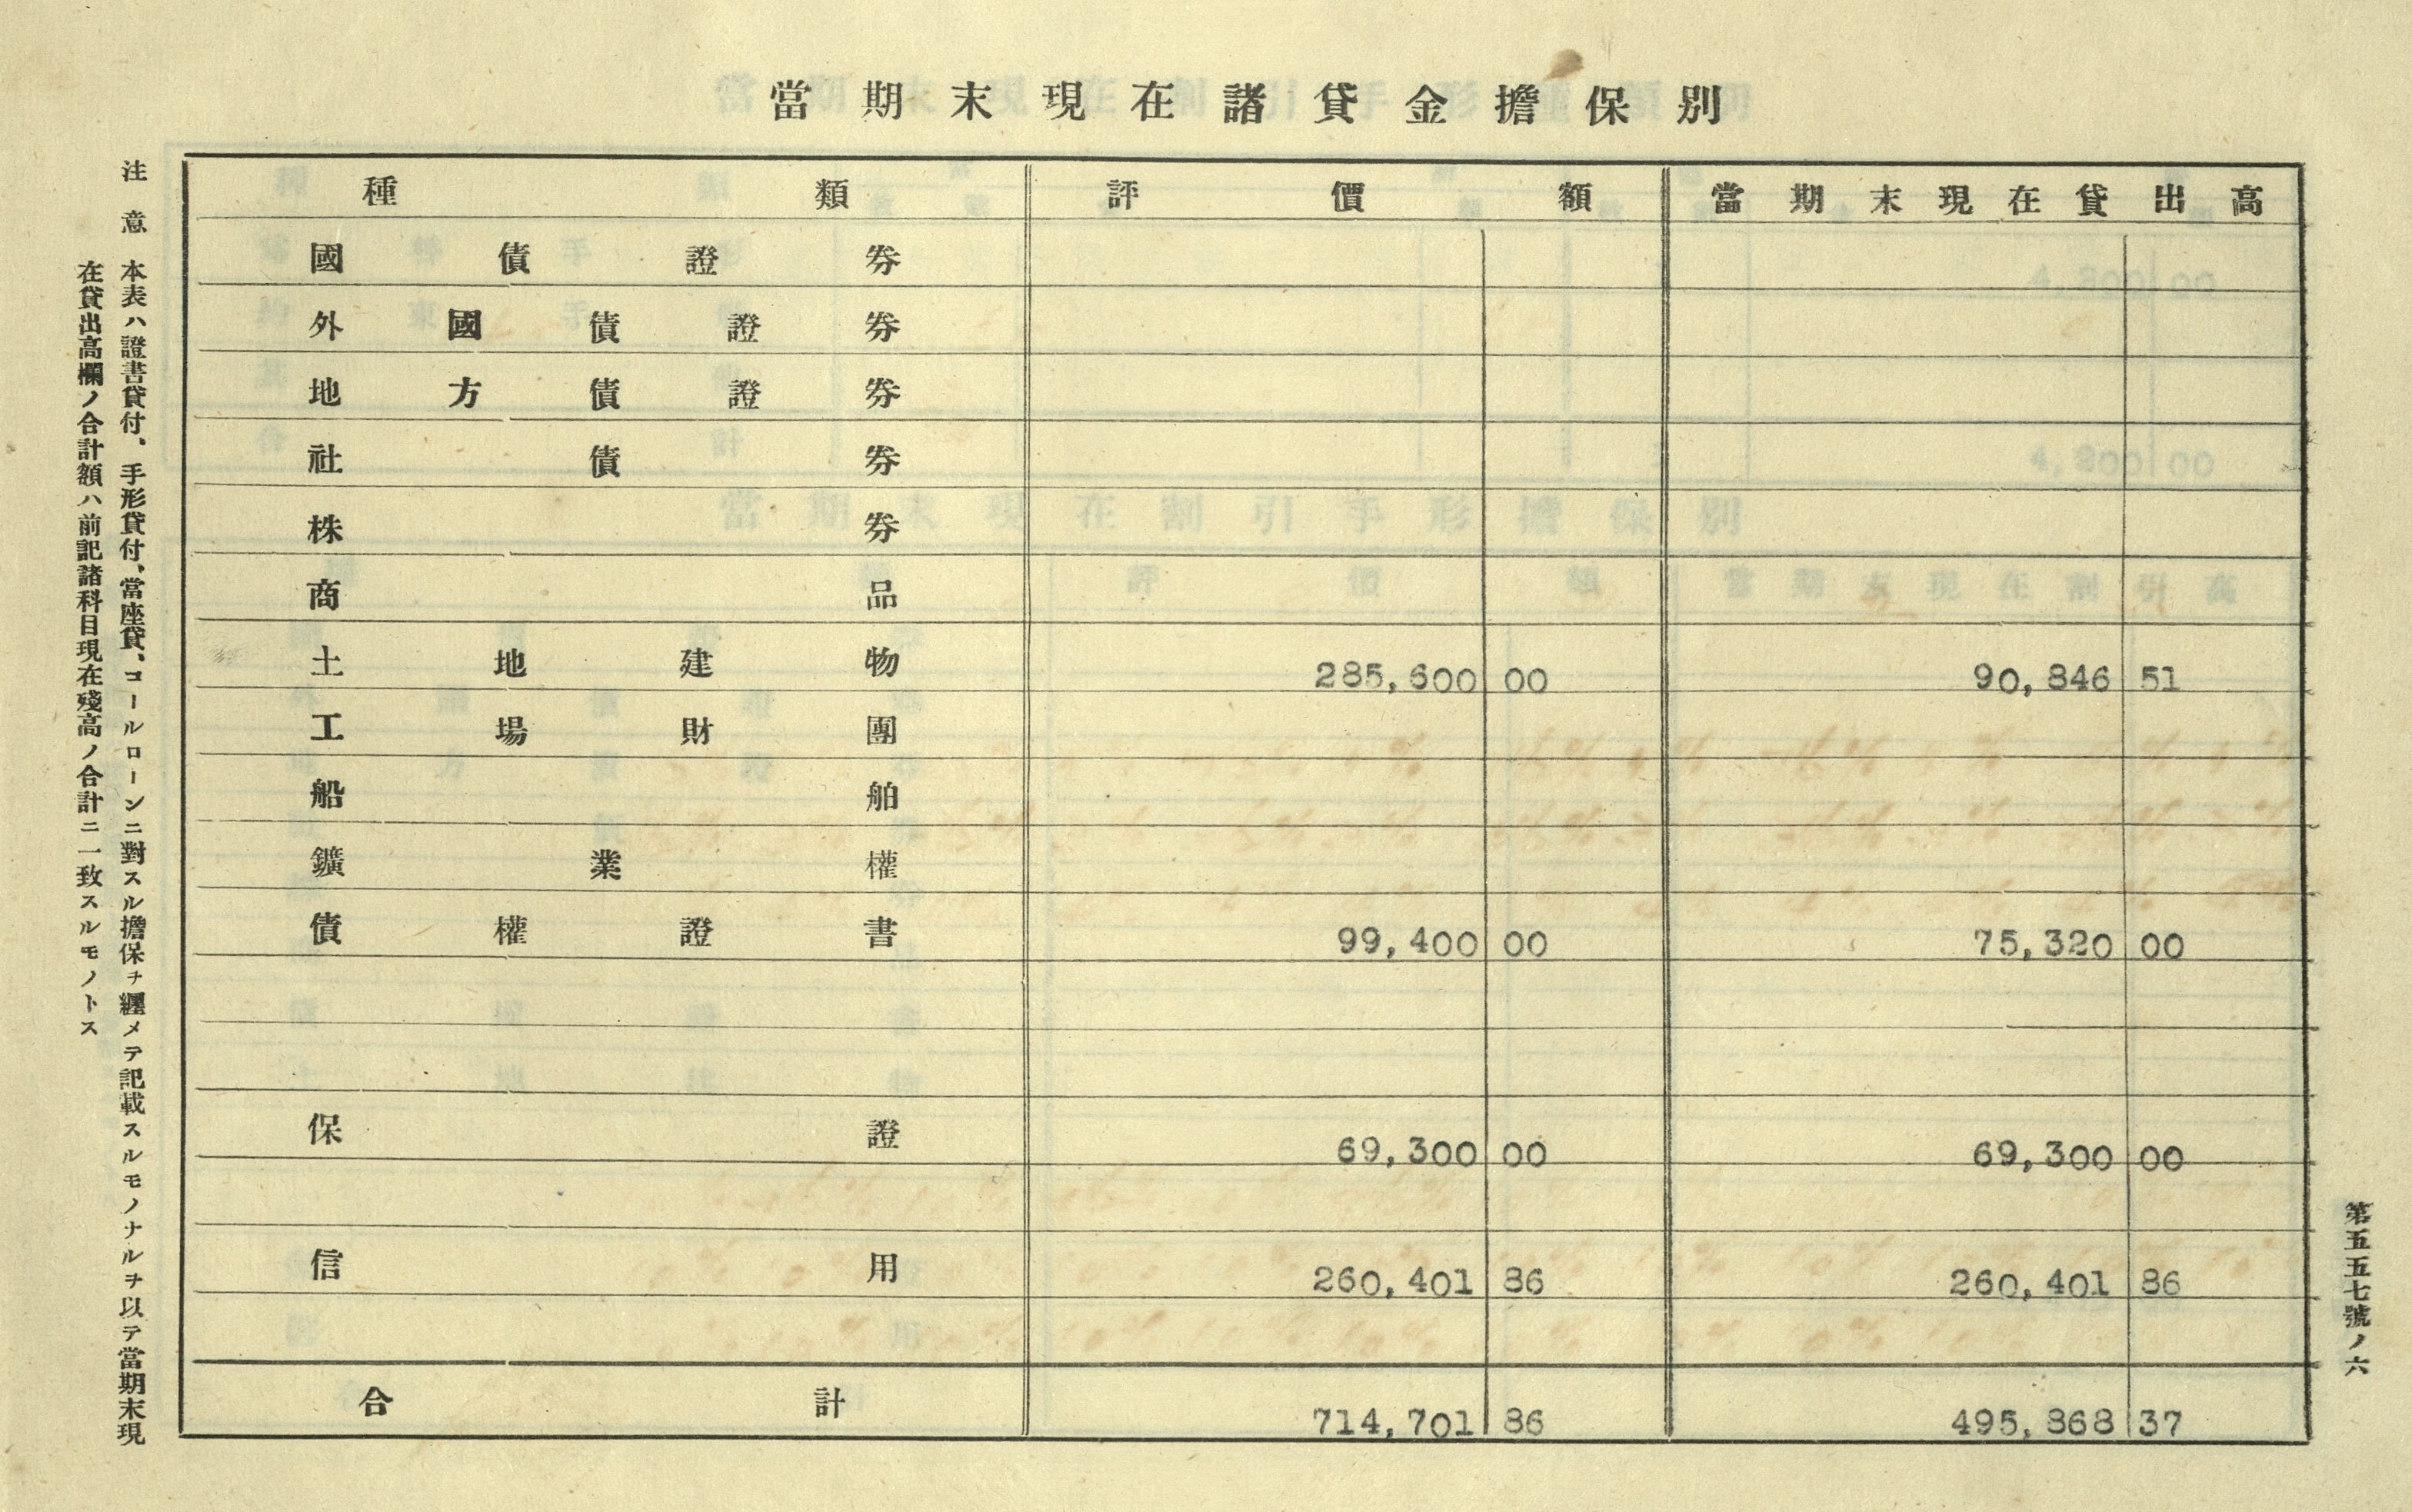 當期末現在諸貸金擔保別
種類 評價額 當期末現在貸出高
國債證券
外國債證券
地方債證券
社債券
株券
商品
土地建物 285,600 00 90,846 51
工場財團
船舶
鑛業權
債權證書 99,400 00 75,320 00
保證 69,300 00 69,300 00
信用 260,401 86 260,401 86
合計 714,701 86 495,868 37
注意 本表ハ證書貸付、手形貸付、當座貸、コールローンニ對スル擔保ヲ纒メテ記載スルモノナルヲ以テ當期末現
在貸出高欄ノ合計額ハ前記諸科目現在殘高ノ合計ニ一致スルモノトス
第五五七號ノ六